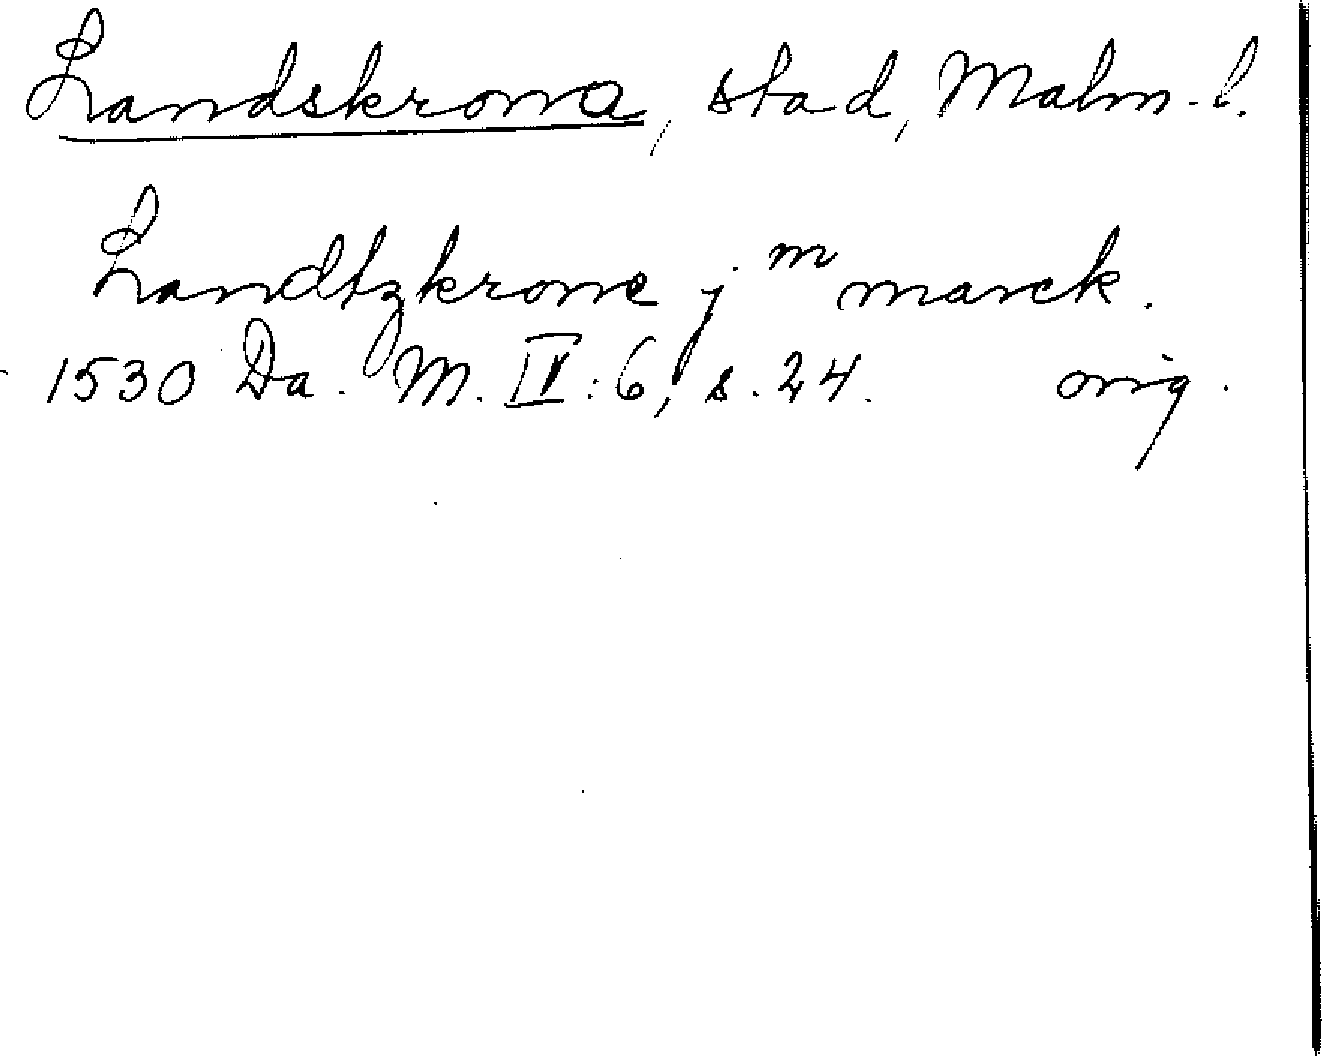 Landskrona, stad, Malm-l.
Landtzkrone j m marck.
1530 Da. M. IV:6, s. 24. orig.